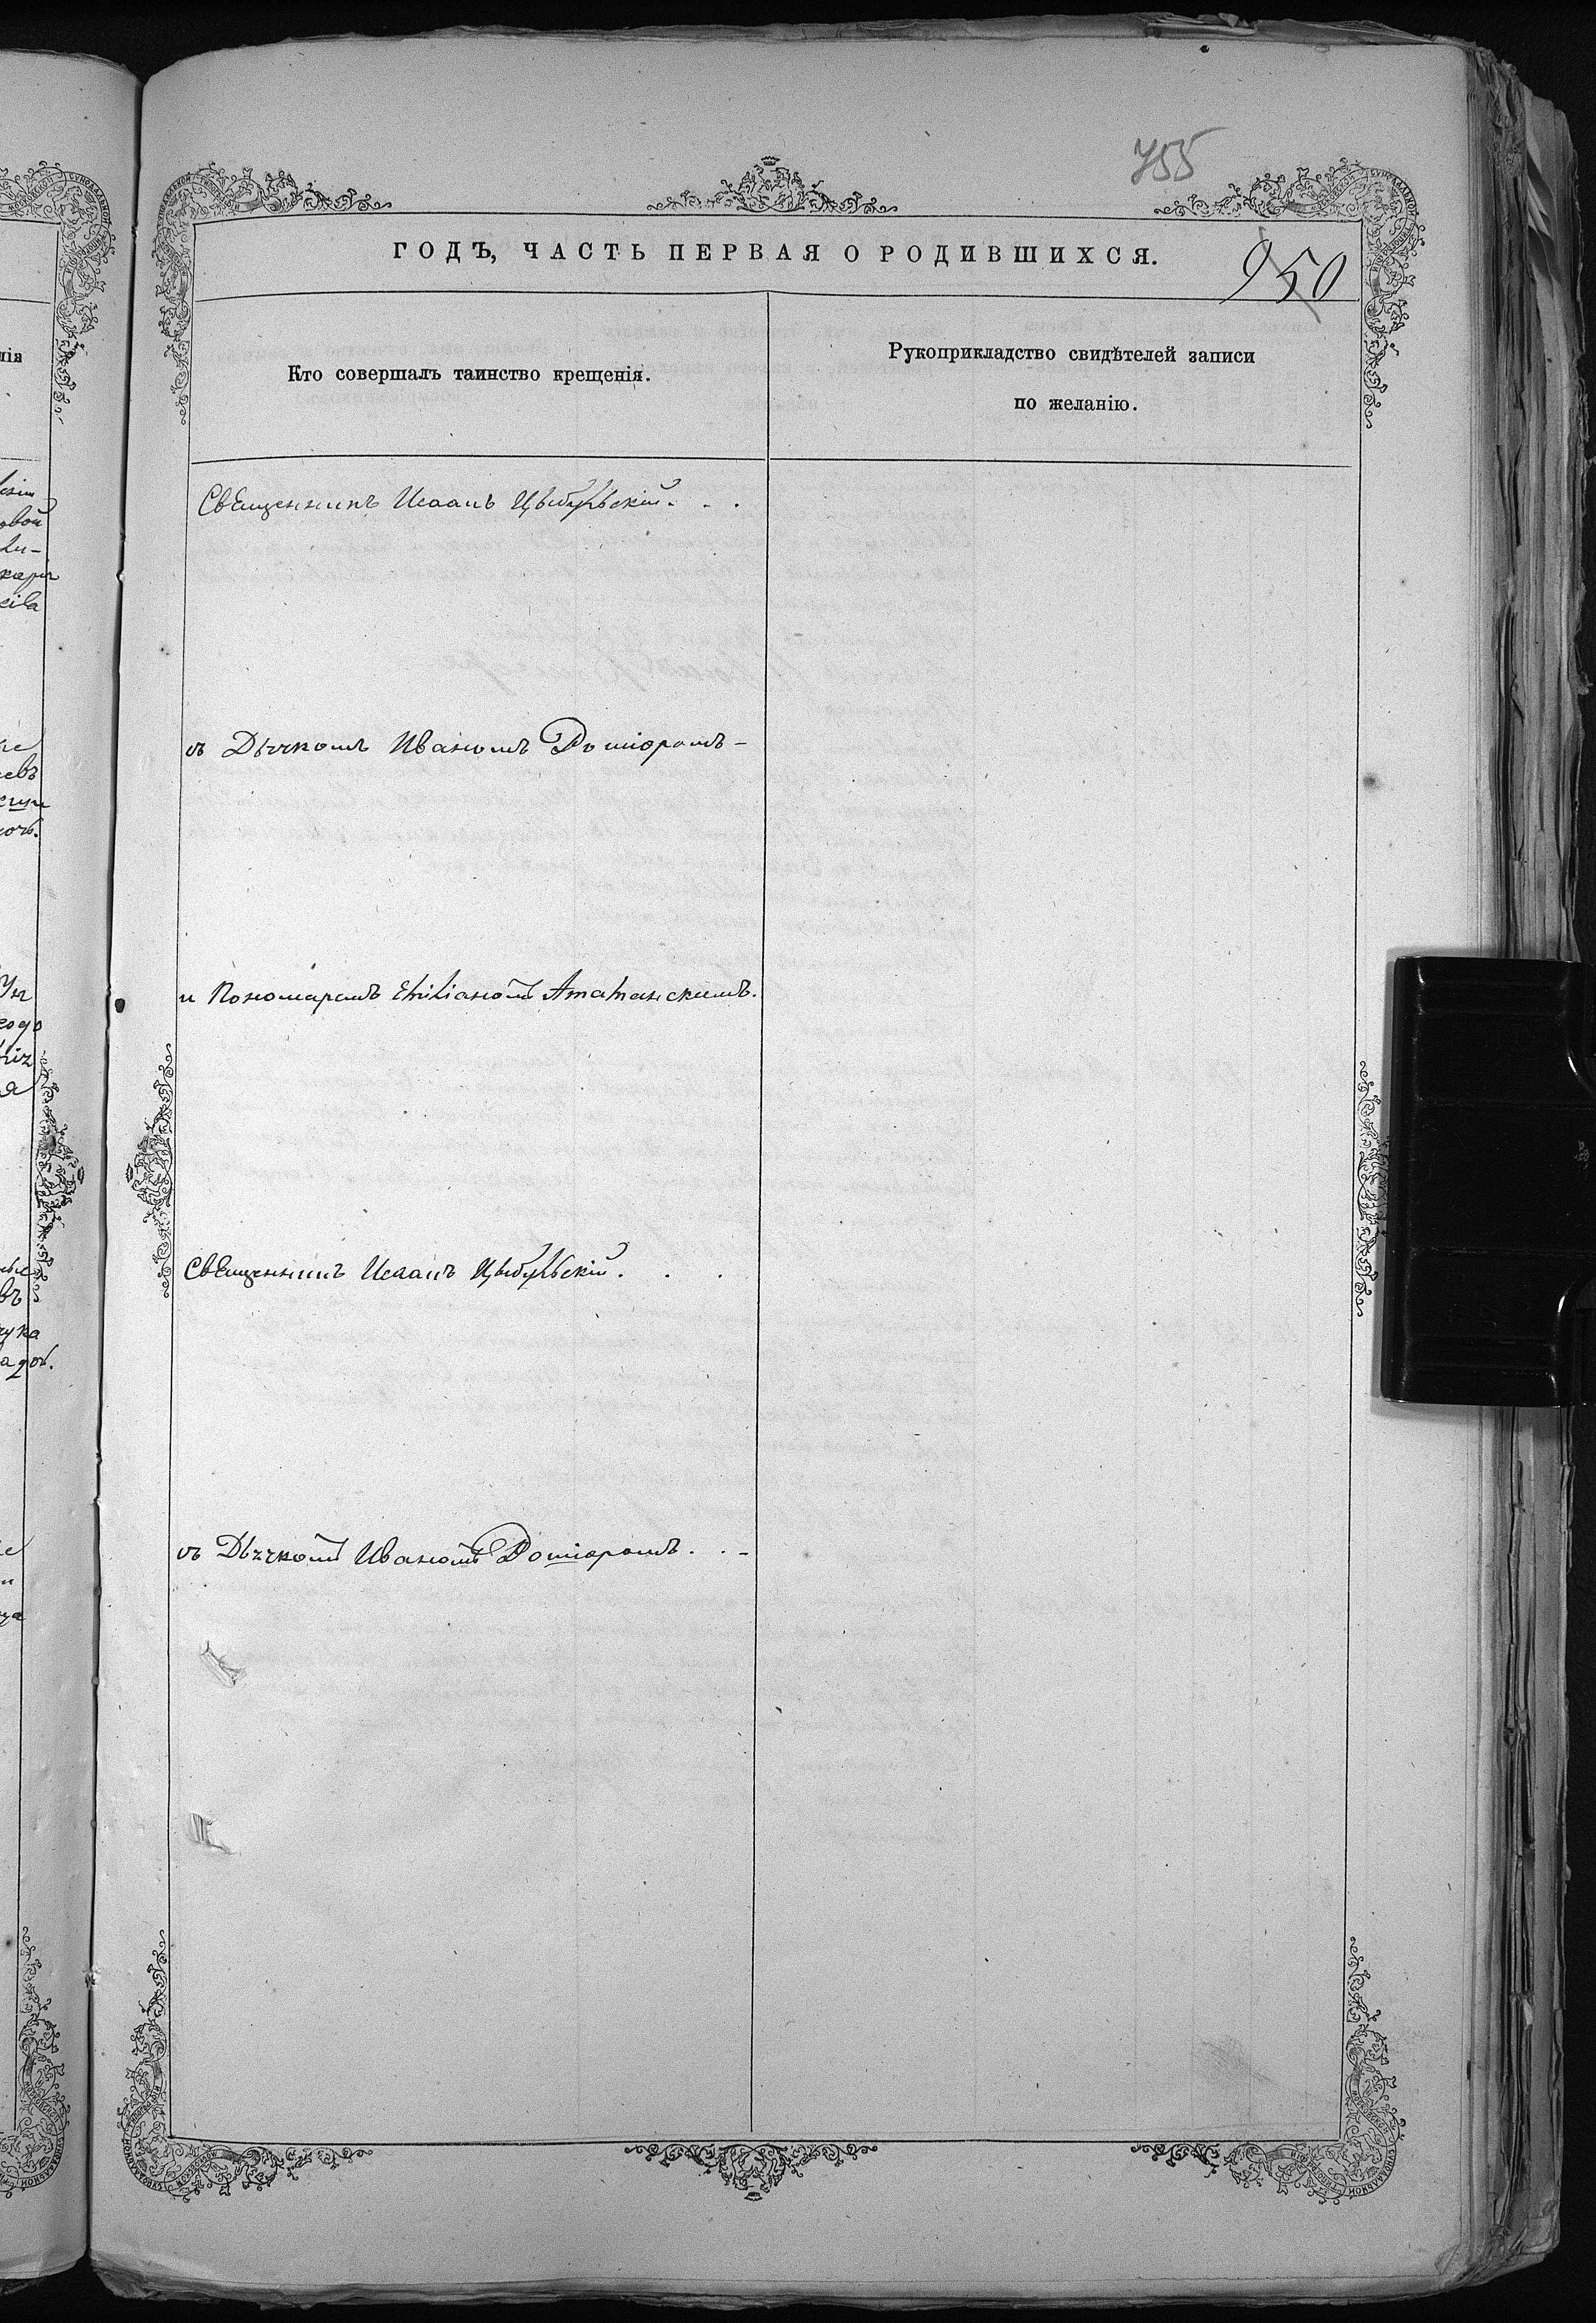 755
ГОДЪ, ЧАСТЬ ПЕРВАЯ О РОДИВШИХСЯ.
950
Кто совершалъ таинство крещенія.
Рукоприкладство свидѣтелей записи
по желанію.
Священникъ Исаакъ Цыбульскій. . .
съ Дьячкомъ Иваномъ
и Пономаремъ Емиліаномъ Атаманскимъ.
Священникъ Исаакъ Цыбульскій. . .
съ Дьячкомъ Иваномъ